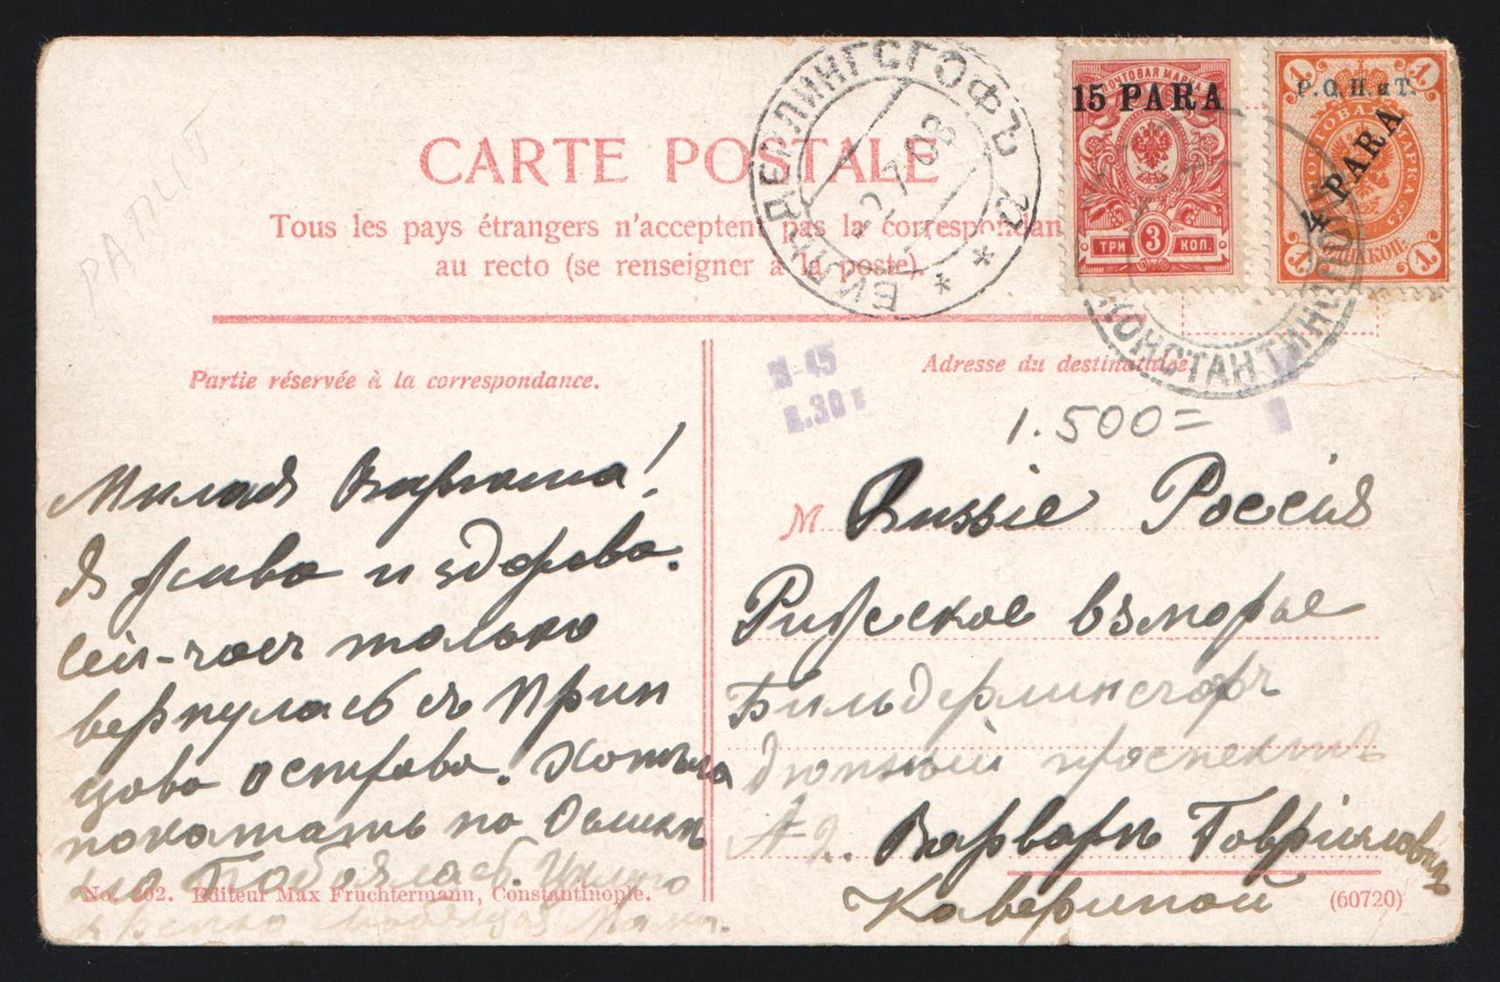 CARTE POSTALE
Tous les pays étrangers n'acceptent pas la correspondan
au recto (se renseigner à la poste).
БИЛЬДЕРЛИНГСГОФЪ
2.7.08
15 PARA
ПОЧТОВАЯ МАРКА
3
ТРИ КОП.
Р.О.П.иТ.
4 PARA
1
КОП.
КОНСТАНТИНОПОЛЬ
Partie réservée à la correspondance.
Adresse du destinataire.
1.500=
Милая Варюша!
Я жива и здорова.
Сей-часъ только
вернулась съ Прин
цова острова. Хотѣла
покатать по
но побоялась. Цѣлую
Мама.
M Russie Россія
Рижское взморье
Бильдерлинсгофъ
Дюнный проспектъ
2.
Варварѣ Гавриловнѣ
Кавериной
No. 202. Editeur Max Fruchtermann, Constantinople.
(60720)